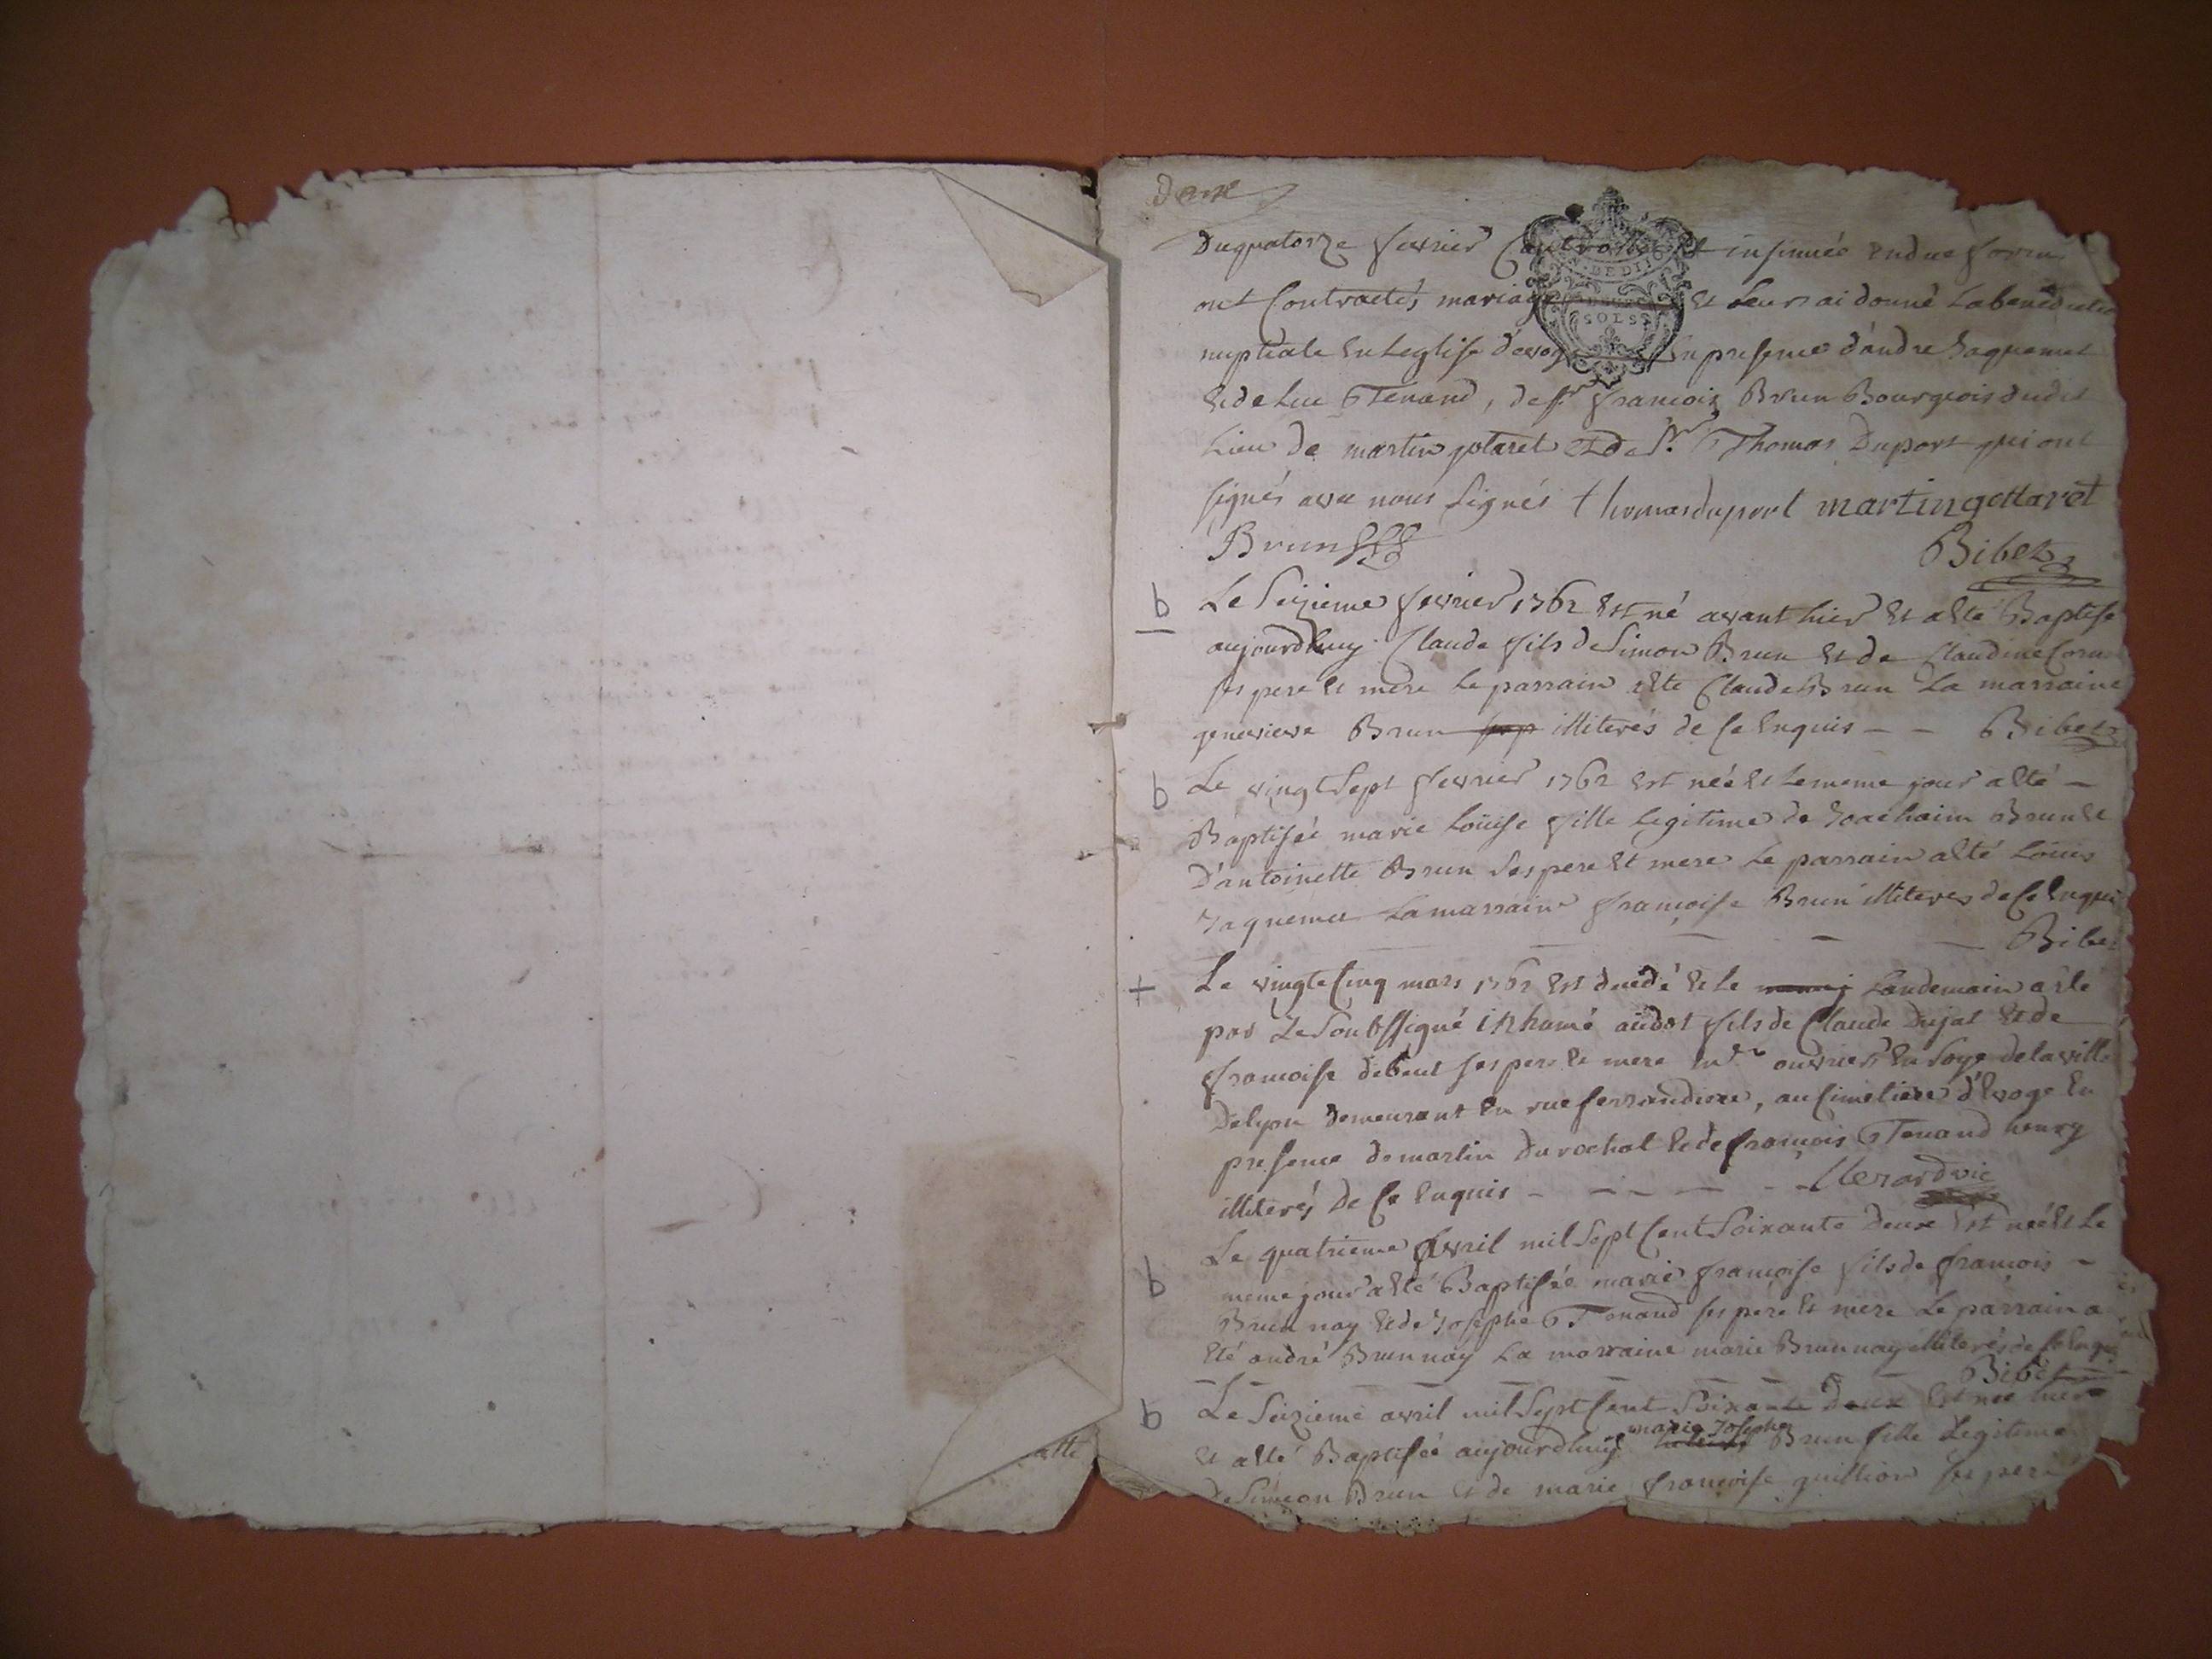 Deux
Duquatorze fevrier Controllé et insinués endue forme
ont Contractés mariage et leurs ai donné Labenedictio
nuptiale En Leglise d'evoge En presence d'andre Jaquemet
Et de Luc Tenand, de sr francois Brun Bourgeois dudit
Lieu De martin gotaret et de sr. Thomas Duport qui ont
signés avec nous signés thomas duport martin gottaret
Brun Bibet
b Le Seizieme fevrier 1762 Est né avant hier Et a Eté Baptise
aujourdhuy Claude fils de Simon Brun Et de Claudine Corn
ses pere Et mere Le parrain a Ete Claude Brun La marraine
genevieve Brun illiterés de Ce Enquis - - Bibet
b Le vingt Sept fevrier 1762 Est néé Et Lememe jour a Eté -
Baptisée marie Loüise fille Legitime de Joachaim Brun Et
D'antoinette Brun Ses pere Et mere Le parrain a Eté Loüis
Jaquemet La marraine francoise Brun illiteres de Ce Enqui
Bibet
+ Le vingt Cinq mars 1762 Est decédé Et Le Landemain a Eté
par Le Soubssigné inhumé fils de Claude Dujat Et de
francoise debeut ses pere Et mere ouvriers En Soye de la ville
De lyon Demeurant En rue ferrandiere, au Cimetiere d'Evoge En
presence de martin Durochat Et de francois Tenand henry
illiterés De Ce Enquis - - - - - Merard vic
b Le quatrieme avril mil Sept Cent Soixante Deux Est néé Et Le
meme jour a Eté Baptisée marie francoise fils de francois -
Brun nay Et de Josephe Tenand ses pere Et mere Le parrain a
Eté andré Brun nay La marraine marie Brun nay illiterés de Ce Enquis
Bibet
b Le Seizieme avril mil Sept Cent Soixante Deux Est née hier
Et a Eté Baptiséé aujourdhuy marie Josephe Brun fille Legitime
De Simeon Brun Et de marie francoise quillion ses pere